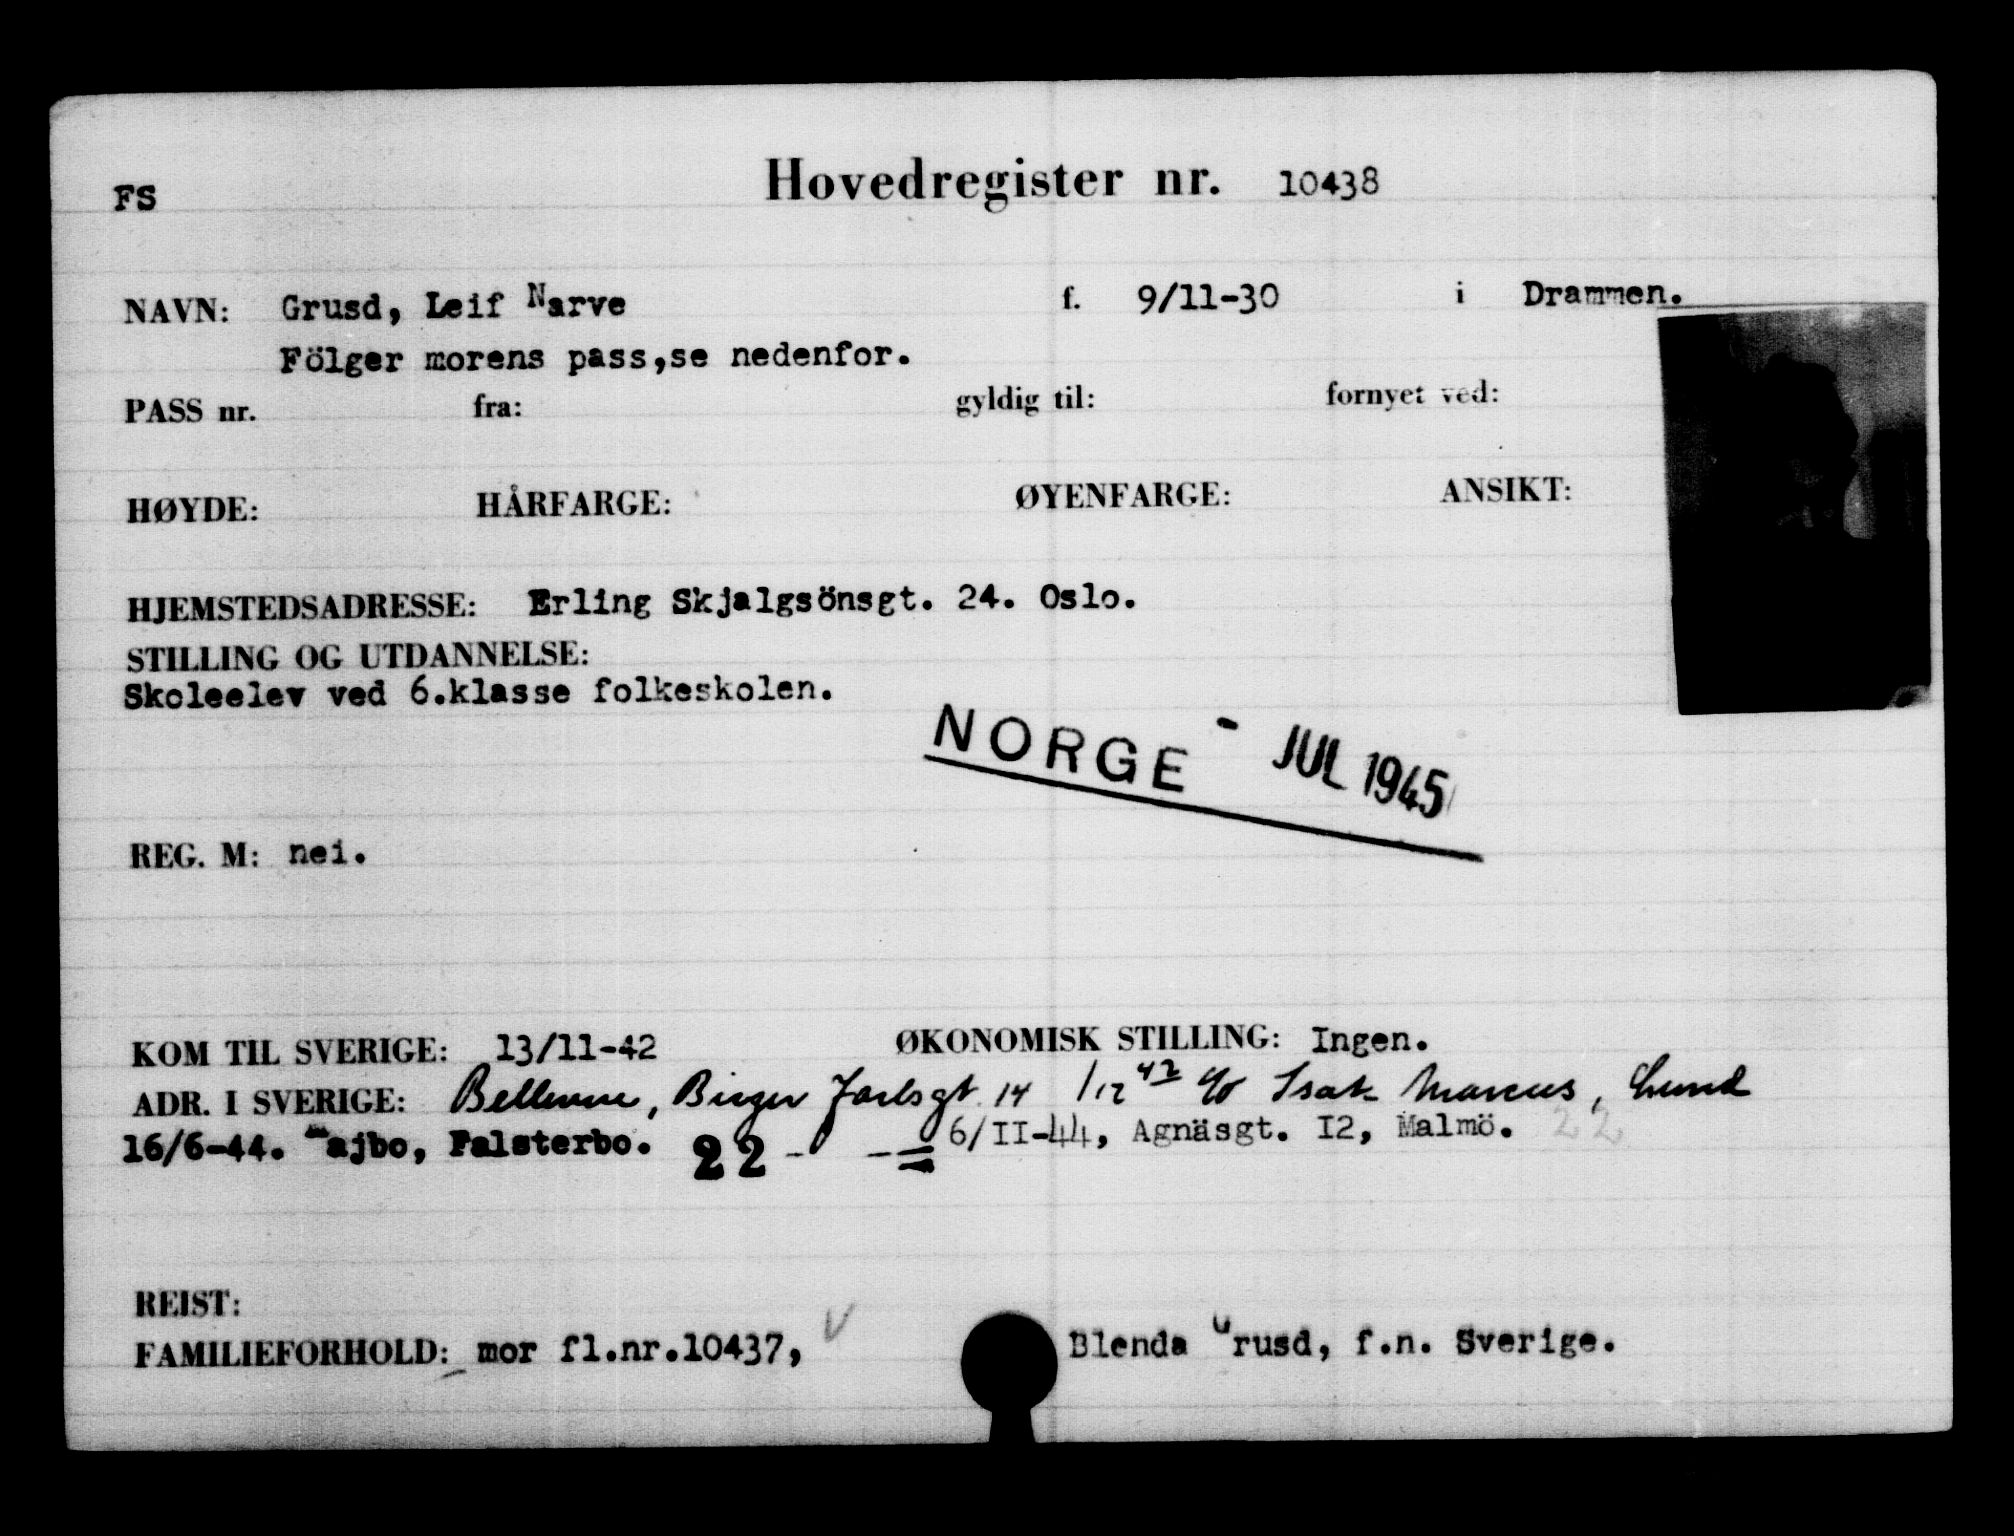 FS
Hovedregister nr. 10438
NAVN: Grusd, Leif Narve f. 9/11-30 i Drammen.
Fölger morens pass,se nedenfor.
PASS nr. fra: gyldig til: fornyet ved:
HØYDE: HÅRFARGE: ØYENFARGE: ANSIKT:
HJEMSTEDSADRESSE: Erling Skjalgsönsgt. 24. Oslo.
STILLING OG UTDANNELSE:
Skoleelev ved 6.klasse folkeskolen.
NORGE - JUL 1945
REG. M: nei.
KOM TIL SVERIGE: 13/11-42 ØKONOMISK STILLING: Ingen.
ADR. I SVERIGE: Bellevue, Birger Jarlsgt 14 1/12 42 c/o Isak Marcus, Lund
16/6-44. Majbo, Falsterbo. 22 - - = 6/II-44, Agnäsgt. I2, Malmö. 22
REIST:
FAMILIEFORHOLD: mor fl.nr.10437, Blenda Grusd, f.n. Sverige.